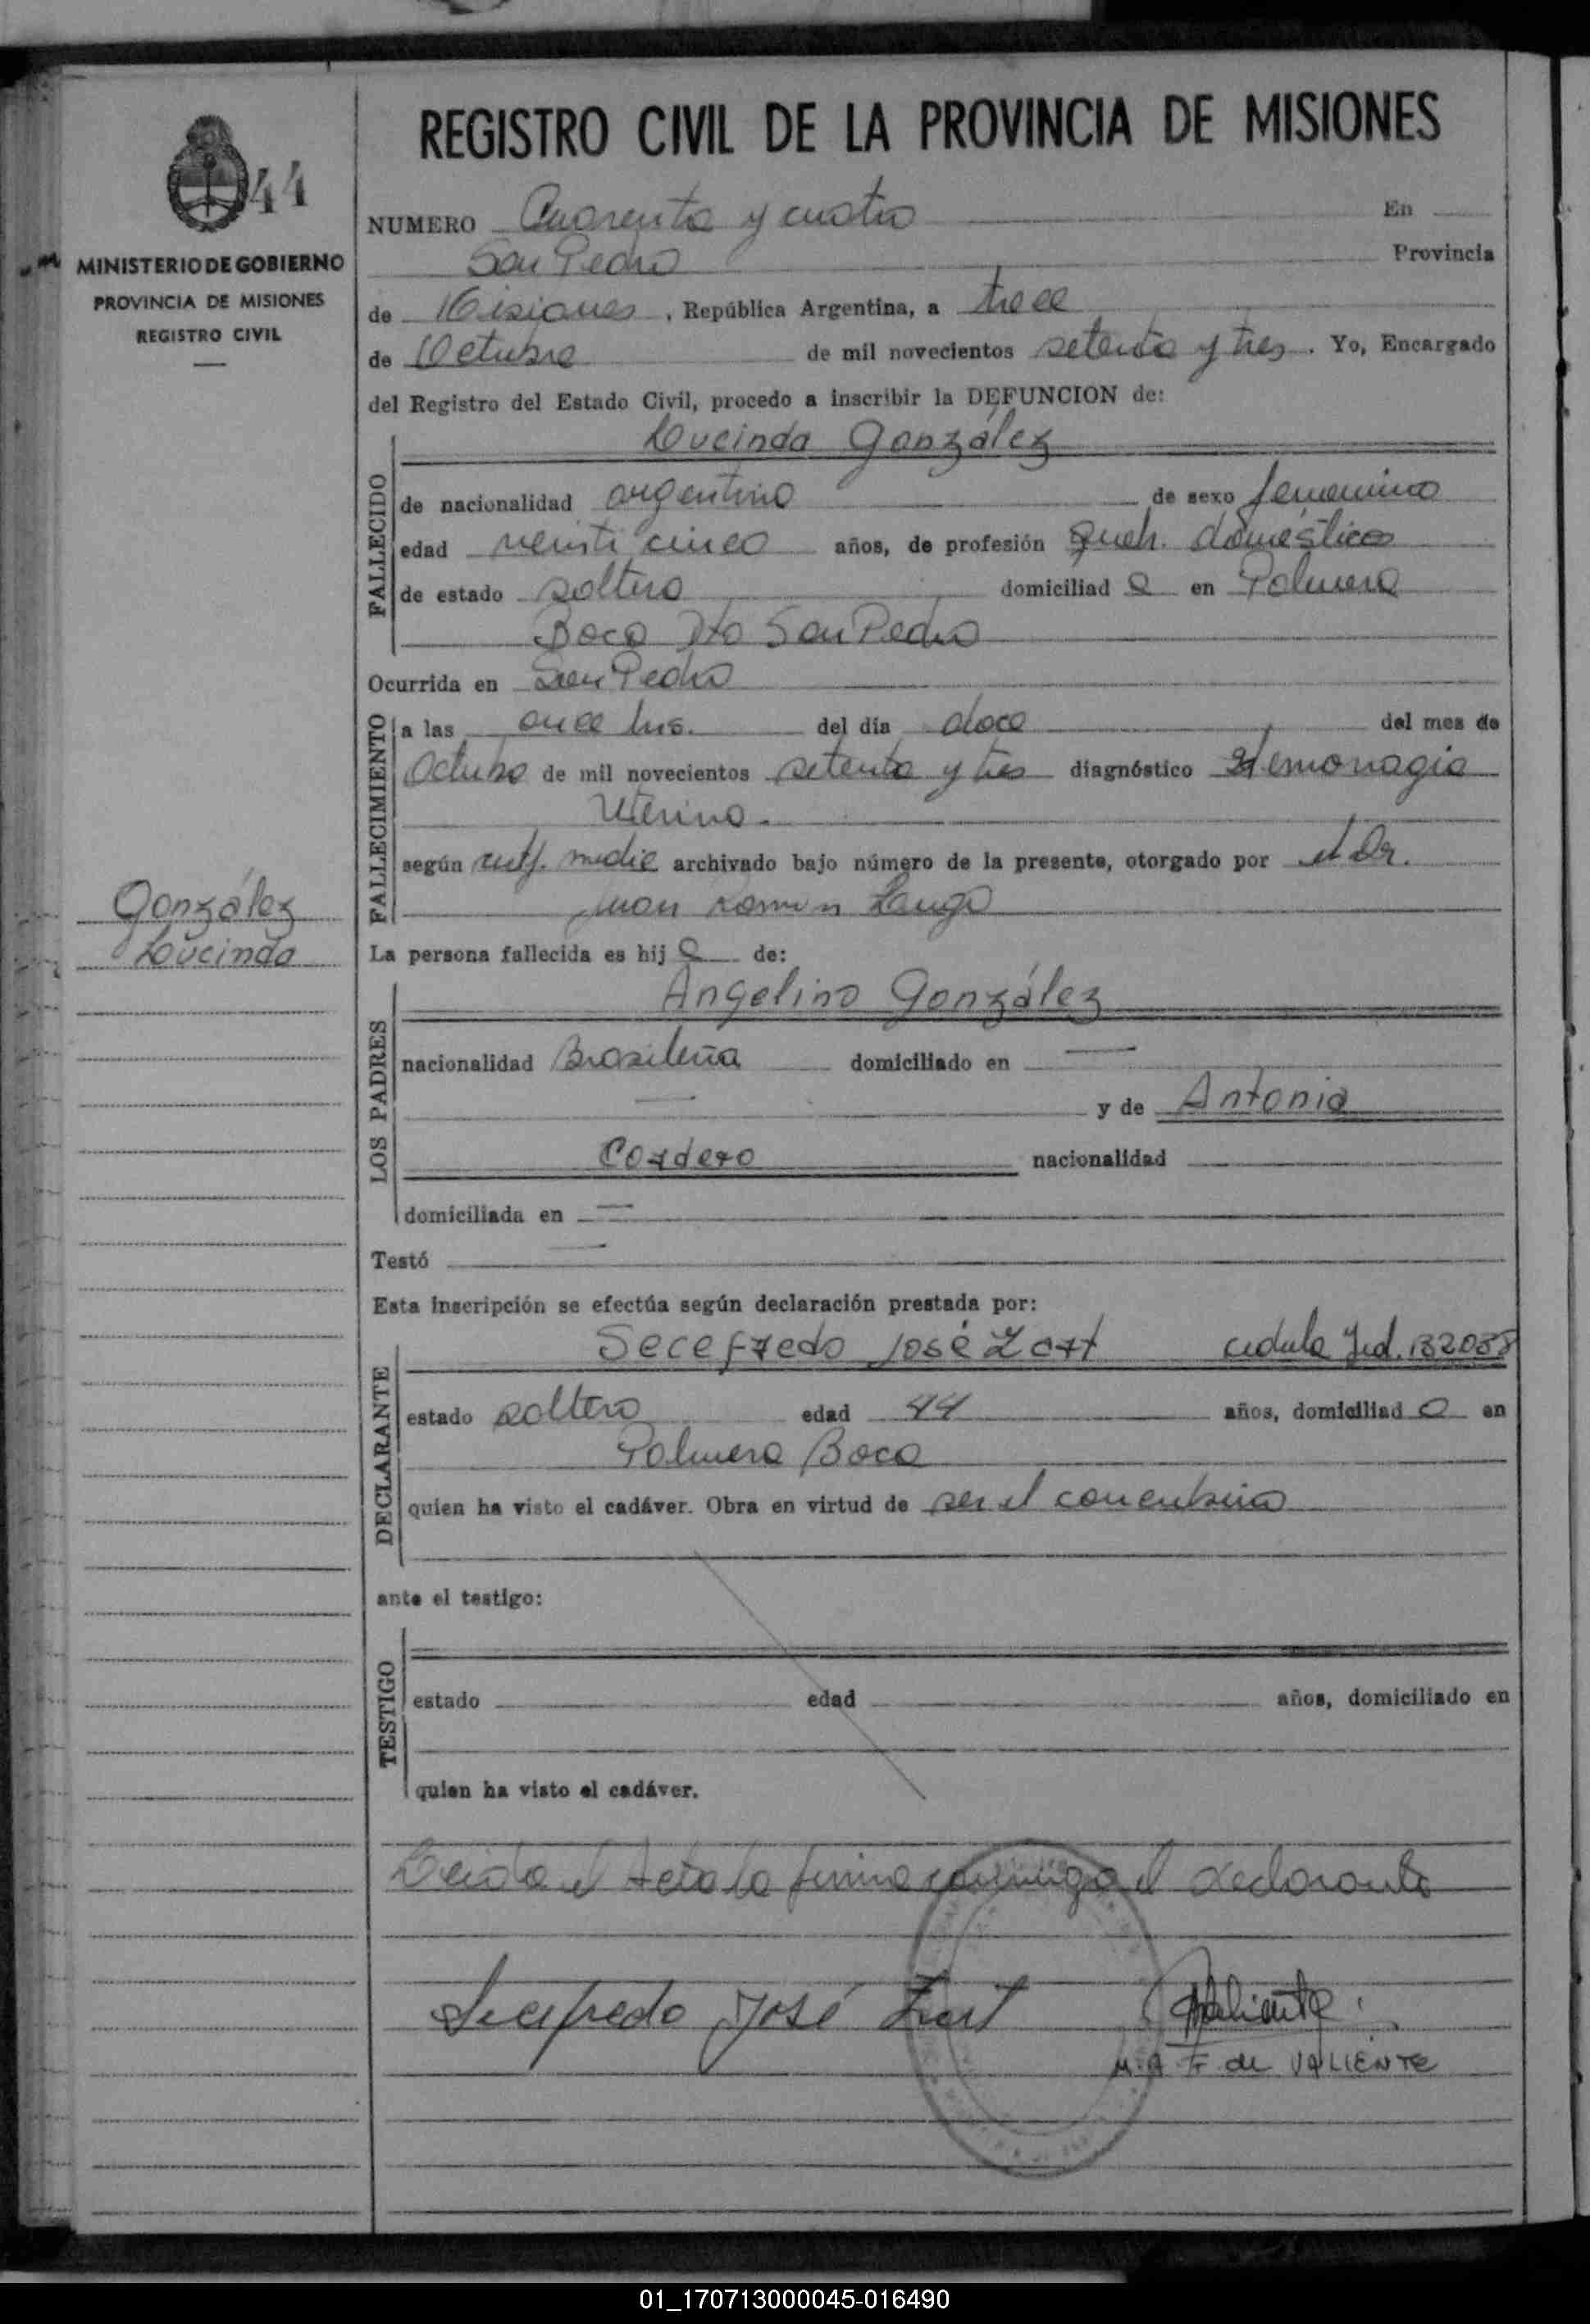 REGISTRO CIVIL DE LA PROVINCIA DE MISIONES
44
MINISTERIO DE GOBIERNO
PROVINCIA DE MISIONES
REGISTRO CIVIL
NUMERO Cuarenta y cuatro En
San Pedro Provincia
de Misiones, República Argentina, a trece
de Octubre de mil novecientos setenta y tres. Yo, Encargado
del Registro del Estado Civil, procedo a inscribir la DEFUNCION de:
Lucinda González
FALLECIDO
de nacionalidad argentina de sexo femenino
edad veinti cinco años, de profesión queh. domésticos
de estado soltera domiciliad a en Palmera
Boca Dto San Pedro
Ocurrida en San Pedro
FALLECIMIENTO
a las once hrs. del día doce del mes de
Octubre de mil novecientos setenta y tres diagnóstico Hemorragia
Uterina.
según certf. medic archivado bajo número de la presente, otorgado por el Dr.
Juan Ramón
González
Lucinda
La persona fallecida es hij a de:
LOS PADRES
Angelino González
nacionalidad Brasileña domiciliado en —
— y de Antonia
Cordero nacionalidad
domiciliada en —
Testó —
Esta inscripción se efectúa según declaración prestada por:
DECLARANTE
Secefredo José Zart cedula Jud. 132038
estado soltero edad 44 años, domiciliad o en
Palmera Boca
quien ha visto el cadáver. Obra en virtud de ser el concubino
ante el testigo:
TESTIGO
estado edad años, domiciliado en
quien ha visto el cadáver.
Leida el Acta la firma conmigo el declarante
Secefredo José Zart Valiente
M. A F. de VALIENTE
01_170713000045-016490